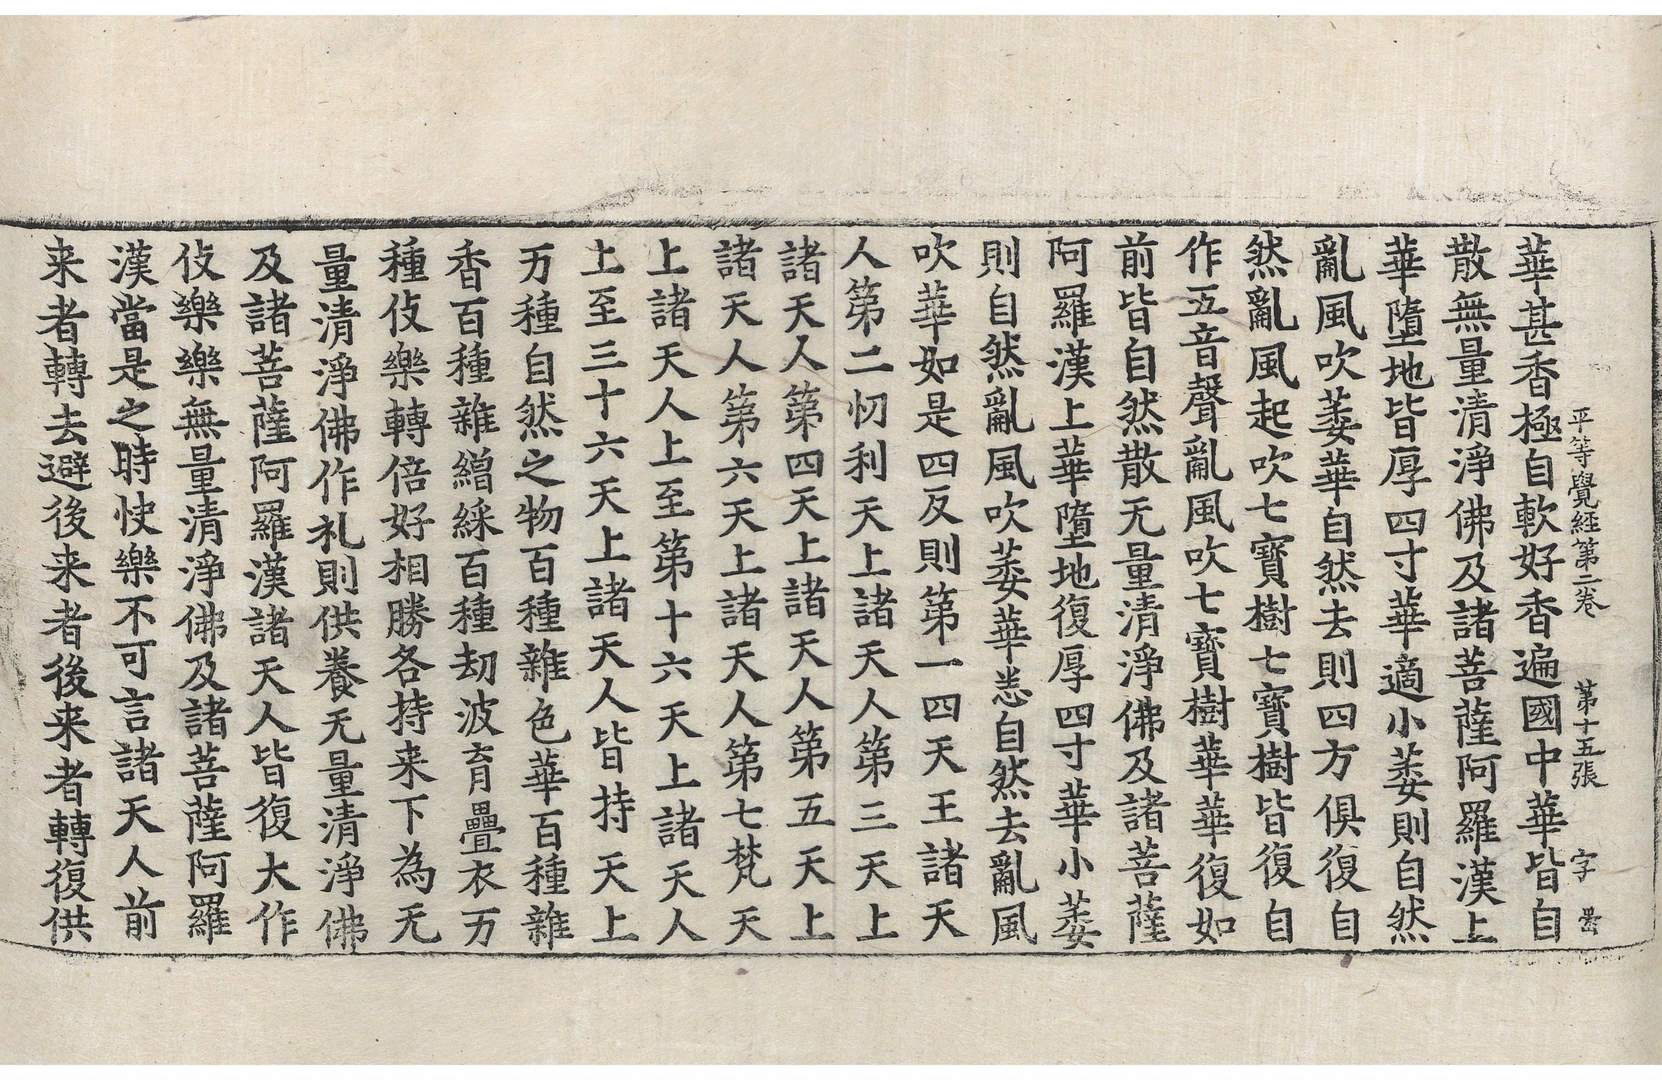 平等覺經第二卷　第十五張　字
華甚香極自軟好香遍國中華皆自
散無量清淨佛及諸菩薩阿羅漢上
華墮地皆厚四寸華適小萎則自然
亂風吹萎華自然去則四方俱復自
然亂風起吹七寶樹七寶樹皆復自
作五音聲亂風吹七寶樹華華復如
前皆自然散无量清淨佛及諸菩薩
阿羅漢上華墮地復厚四寸華小萎
則自然亂風吹萎華悉自然去亂風
吹華如是四反則第一四天王諸天
人第二忉利天上諸天人第三天上
諸天人第四天上諸天人第五天上
諸天人第六天上諸天人第七梵天
上諸天人上至第十六天上諸天人
上至三十六天上諸天人皆持天上
万種自然之物百種雜色華百種雜
香百種雜繒綵百種劫波育疊衣万
種伎樂轉倍好相勝各持来下為无
量清淨佛作礼則供養无量清淨佛
及諸菩薩阿羅漢諸天人皆復大作
伎樂樂無量清淨佛及諸菩薩阿羅
漢當是之時快樂不可言諸天人前
来者轉去避後来者後来者轉復供